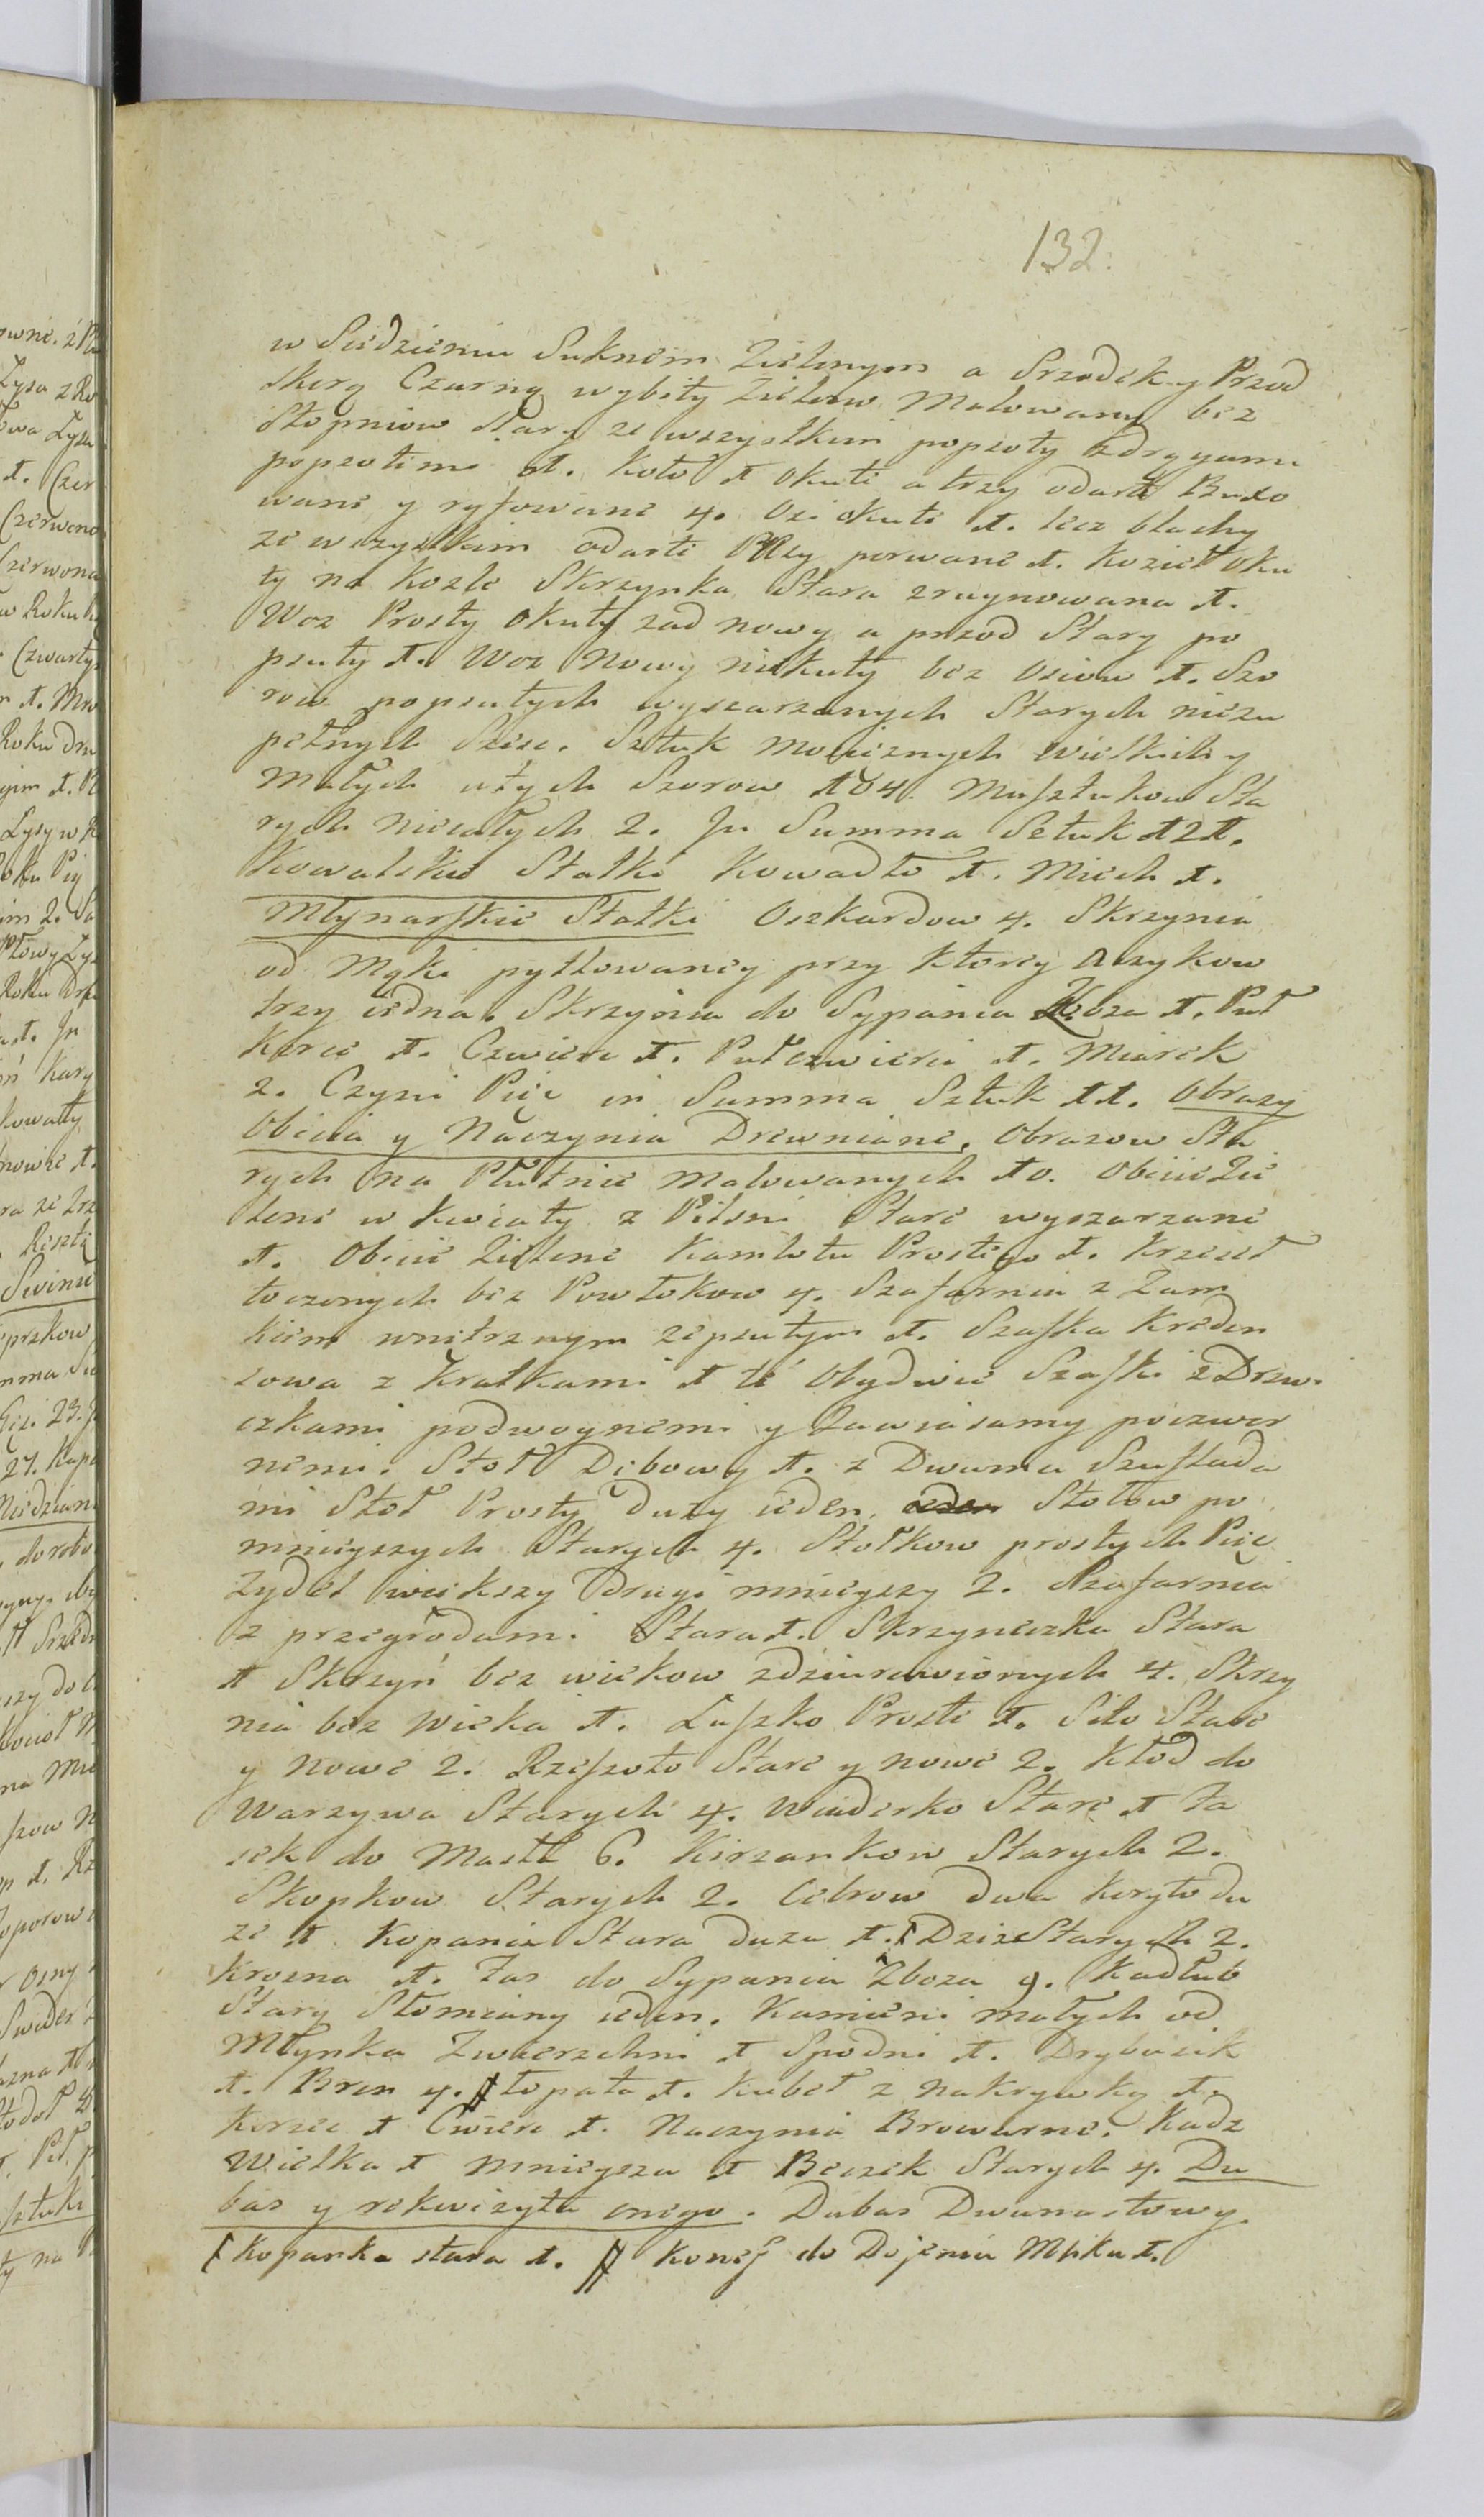 132.
w Siedzieniu Suknem Zielonym a Srzodek y Przod
skorą Czarną wybity Zielono Malowany bez
Stopniow stary ze wszystkim popsoty z drygami
popsotemi 1. Koło 1 Okute a trzy odarte Buxo
wane y ryfowane 4. Osi okute 1. lecz blachy
ze wszystkim odarte Pasy porwane 1. Kozieł oku
ty na Kozle Skrzynka Stara zruynowana 1.
Woz Prosty Okuty zad nowy a przod Stary po
psuty 1. Woz Nowy niekuty bez Osiow 1. Szo
row popsutych wyszarzanych Starych niezu
pełnych Szesc. Sztuk Mosieznych wielkich y
Małych u tych Szorow 104. Musztukow Sta
rych niecałych 2. In Summa Sztuk 121.
Kowalskie Statki Kowadło 1. Miech 1.
Młynarskie Statki Oszkardow 4. Skrzynia
od Mąki pytlowaney przy ktorey Azykow
trzy iedna. Skrzynia do Sypania Zboza 1. Puł
Korce 1. Cwierc 1. Pułczwierci 1. Miarek
2. Czyni Pięc in Summa Sztuk 11. Obrazy
Obicia y Naczynia Drewniane. Obrazow Sta
rych na Płutnie Malowanych 10. Obicie Zie
lone w kwiaty z Pilsni Stare wyszarzane
1. Obicie Zielone Kamlotu Prostego 1. Krzeseł
toczonych bez Powłokow 4. Szafarnia z Zam
kiem wnitrznym zepsutym 1. Szafka Kreden
sowa z Kratkami 1 te Obydwie Szafki z Drzwi
czkami podwoynemi y Zawiasamy poczwor
nemi. Stoł Dębowy 1. z Dwuma Szufłada
mi Stoł Prosty duzy ieden. Stołow po
mnieyszych Starych 4. Stołkow prostych Pięc
Zydel większy drugi mnieyszy 2. Szafarnia
z przegrodami Stara 1. Skrzyneczka Stara
1 Skrzyń bez wiekow zdziurawionych 4. Skrzy
nia bez Wieka 1. Łuszko Proste 1. Sito Stare
y Nowe 2. Rzeszoto Stare y nowe 2. Kłod do
Warzywa Starych 4. Wiaderko Stare 1 Fa
sek do Masła 6. Kirzankow Starych 2.
Skopkow Starych 2. Cebrow dwa Koryto du
ze 1 Kopania Stara duza 1. Dziz Starych 2.
Krosna 1. Fas do Sypania Zboza 9. Kadłub
Stary Słomiany ieden. Kamieni małych od
Młynka Zwierzchni 1 Spodni 1. Drybusek
1. Bron 4. łopata 1. Kubeł z nakrywką 1.
Korzec 1 Cwierc 1. Naczynia Browarne. Kadz
Wielka 1 mnieysza 1 Beczek Starych 4. Du
bas y rekwizyta onego. Dubas Dwunastowy.
Kopanka stara 1. Konef do Dojenia Mlika 1.